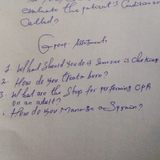 evaluate this patient's Condition or
Called?
Group Assignments
1 What Should you do is Someone is choking
2 How do you treat a burn?
3 What are the Steps for performing CPR
on an adult?
4 How do you Manage a Sprain?